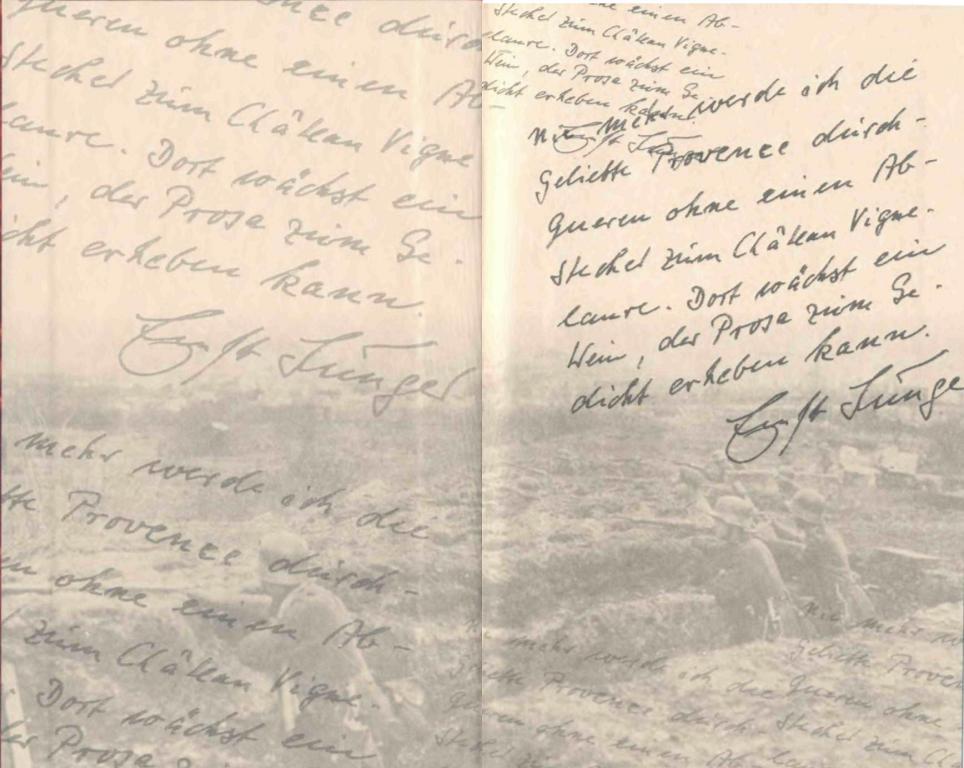 durch
queren ohne einen Ab-
stecher zum Château Vigne
laure. Dort wächst ein
ein, der Prosa zum Ge-
icht erheben kann.
Ernst Jünger
mehr werde ich die
bte Provence durch-
en ohne einen Ab-
zum Château Vigne-
Dort wächst ein
der Prosa
ne einen Ab-
stecher zum Château Vigne-
laure. Dort wächst ein
Wein, der Prosa zum Ge-
dicht erheben kann.
Ernst Jünger
Nie mehr werde ich die
geliebte Provence durch-
queren ohne einen Ab-
stecher zum Château Vigne-
laure. Dort wächst ein
Wein, der Prosa zum Ge-
dicht erheben kann.
Ernst Jünge
Nie mehr werde ich die
geliebte Provence durch-
queren ohne einen Ab-
stecher zum
Nie mehr
geliebte Proven
queren ohne
stecher zum Châ